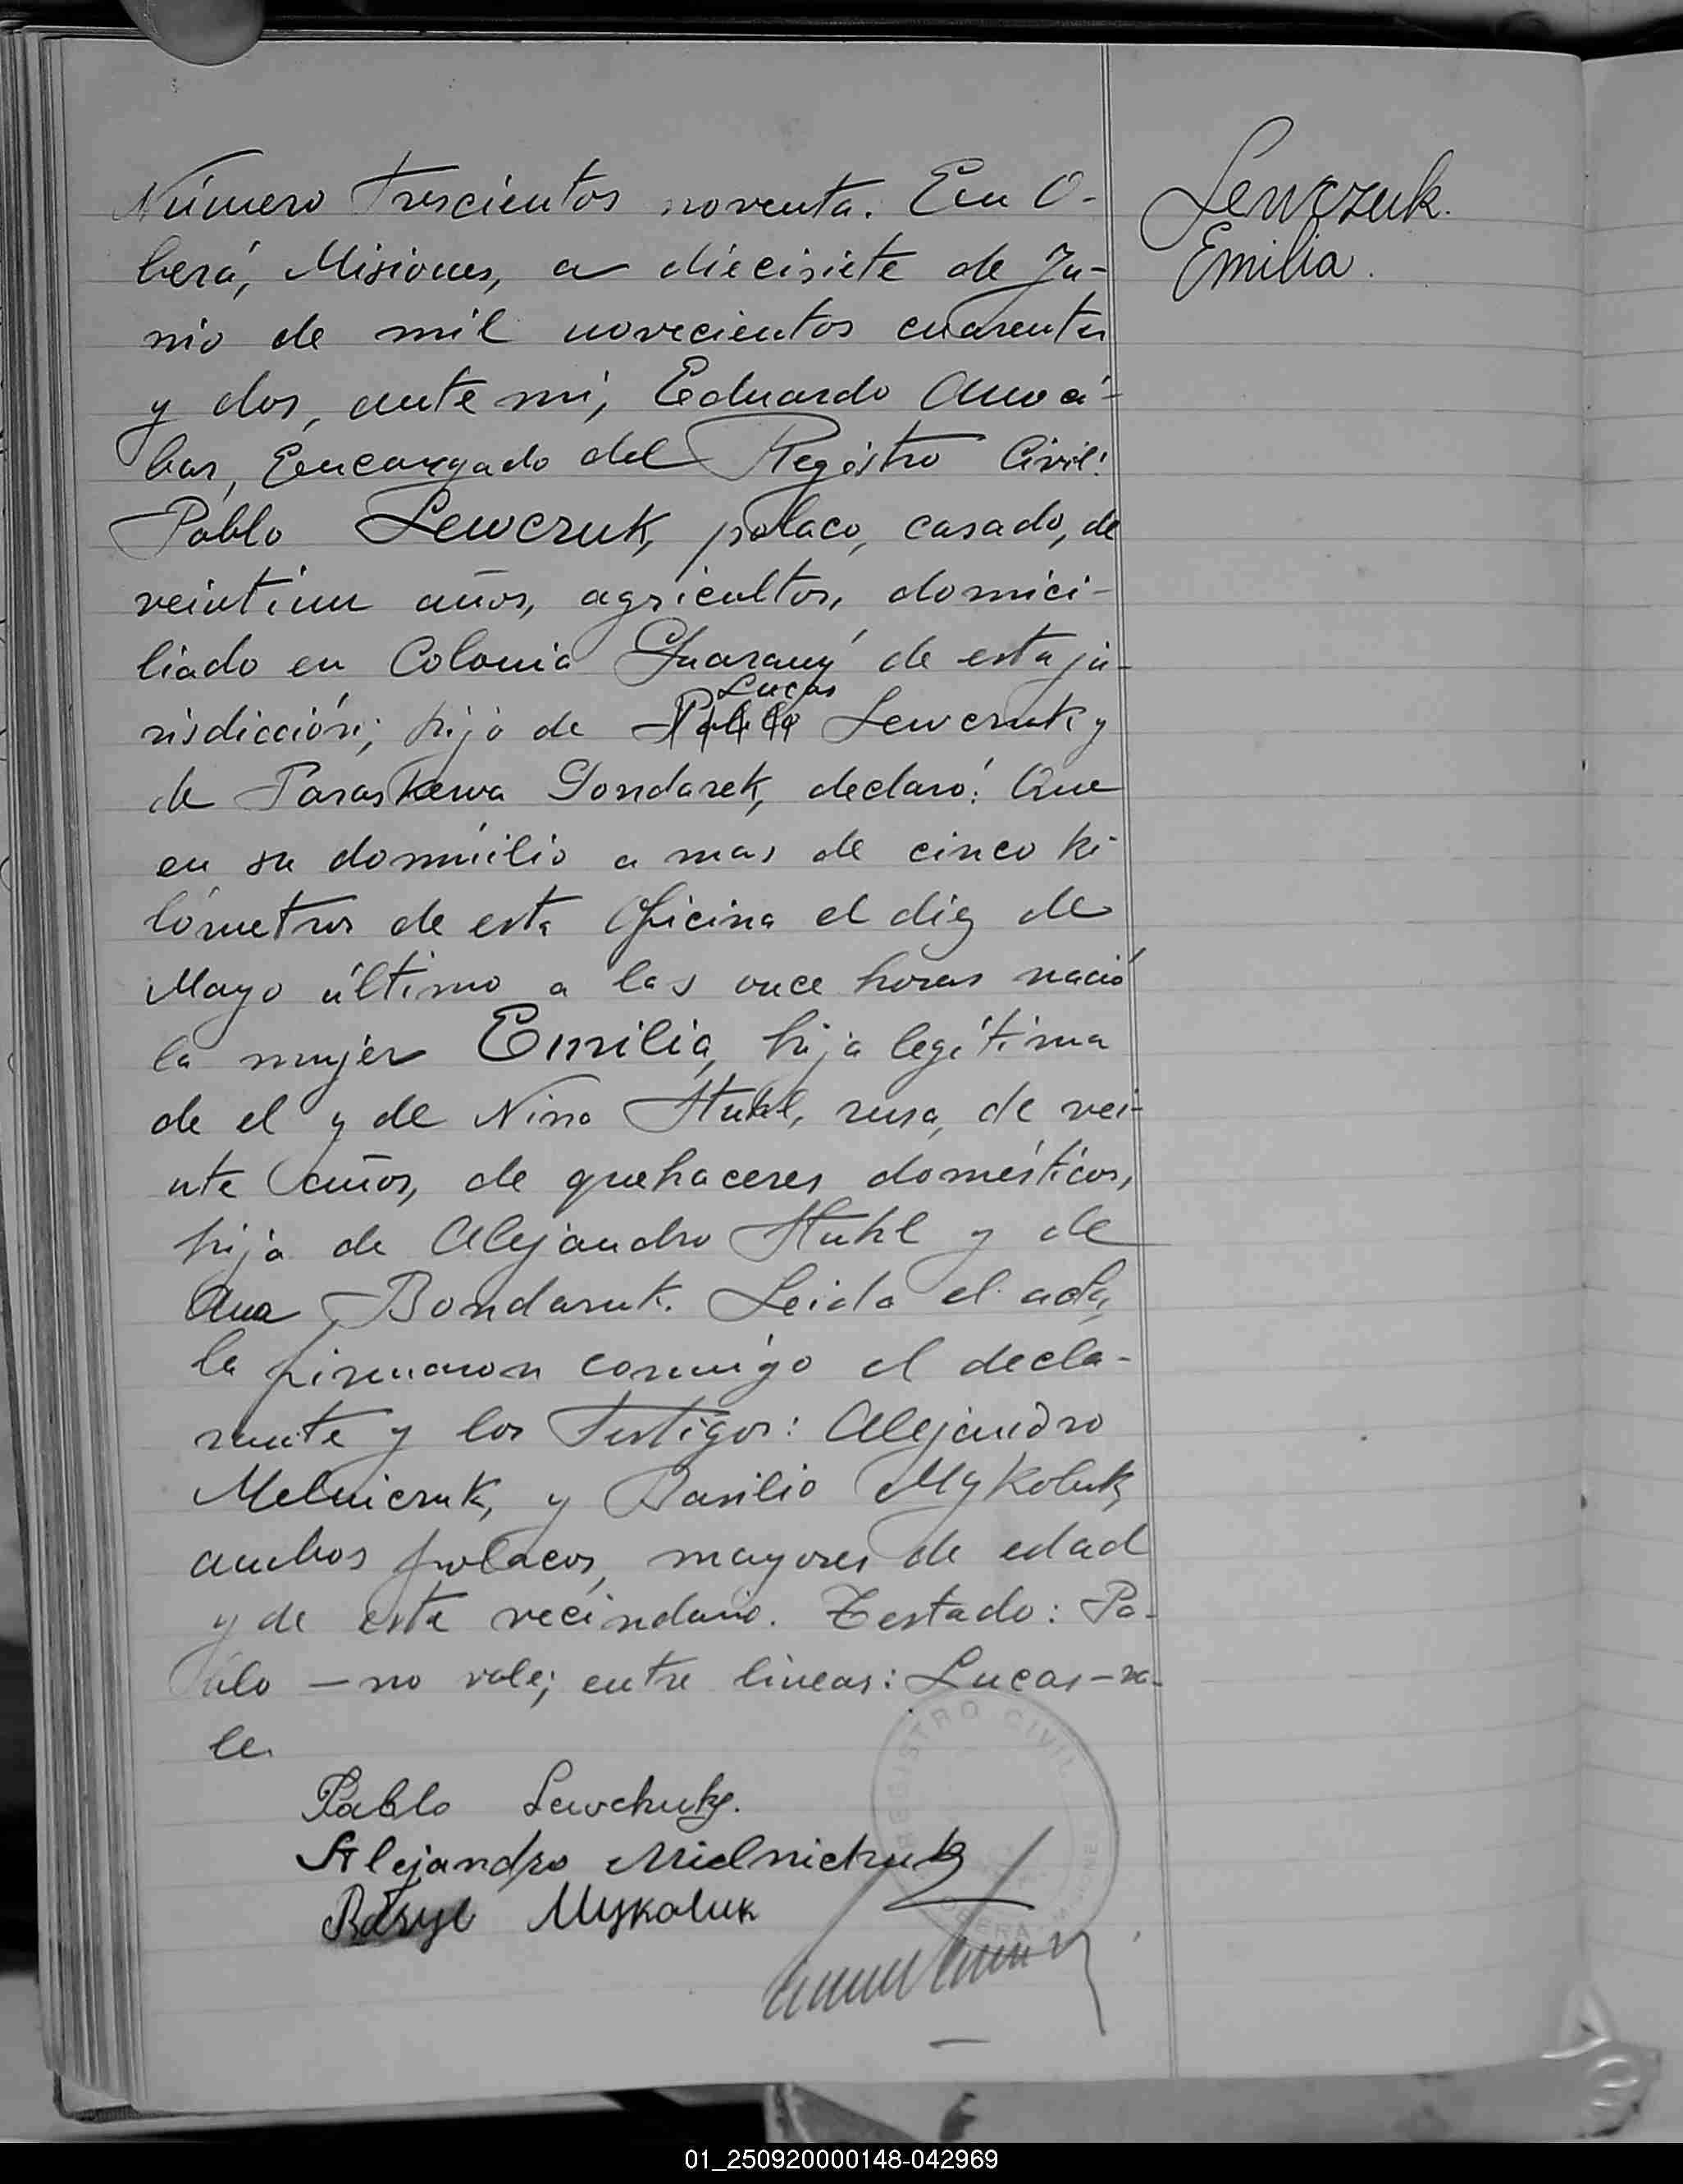 Número trescientos noventa. En O-
berá, Misiones, a diecisiete de Ju-
nio de mil novecientos cuarenta
y dos, ante mi, Eduardo
bar, Encargado del Registro Civil:
Pablo Lewczuk, polaco, casado, de
veintiun años, agricultor, domici-
liado en Colonia Guarany de esta ju-
Lucas
risdicción; hijo de Pablo Lewczuk y
de Paraskewa Gondarek, declaró: Que
en su domicilio a mas de cinco ki-
lómetros de esta Oficina el diez de
Mayo último a las once horas nació
la mujer Emilia, hija legítima
de el y de Nina Stuhl, rusa, de vei-
nte años, de quehaceres domésticos,
hija de Alejandro Stuhl y de
Ana Bondaruk. Leida el acta,
la firmaron conmigo el decla-
rante y los testigos: Alejandro
Melniczuk, y Basilio Mykoluk,
ambos polacos, mayores de edad
y de este vecindario. Testado: Pa-
blo - no vale; entre líneas: Lucas - va-
le.
Lewczuk.
Emilia.
Pablo Lewchuk.
Alejandro Mielnichuk
Bazyl Mykoluk
REGISTRO CIVIL
OBERA MISIONES
01_250920000148-042969